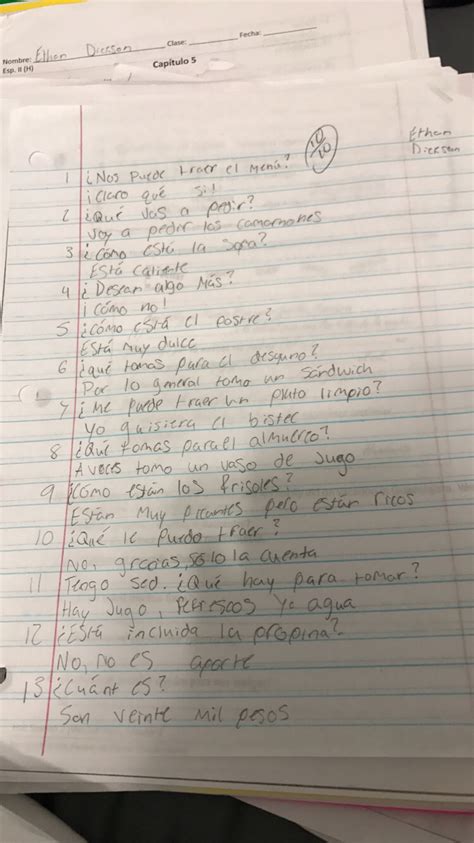 Nombre: Ethan Dierson Clase: Fecha:
Esp. II (H)
Capítulo 5
10/10
Ethan
Dierson
1 ¿Nos Puede traer el Menú?
¡Claro qué Si!
2 ¿Qué vas a pedir?
Voy a pedir los camarnones
3 ¿Cómo Está la Sopa?
Está caliente
4 ¿Desean algo Más?
¡Cómo no!
5 ¿Cómo Está el postre?
Está Muy dulce
6 ¿qué tomas para el desyuno?
Por lo general tomo un sándwich
7 ¿Me puede traer un plato limpio?
Yo quisiera el bistec
8 ¿Qué tomas para el almuerco?
A veces tomo un vaso de Jugo
9 ¿Cómo están los frisoles?
Están Muy picantes pero están ricos
10 ¿Qué le Puedo traer?
No, gracias, sólo la cuenta
11 Tengo sed. ¿Qué hay para tomar?
Hay Jugo, Refrescos y agua
12 ¿Está incluida la propina?
No, no es aparte
13 ¿Cuánt es?
Son veinte mil pesos